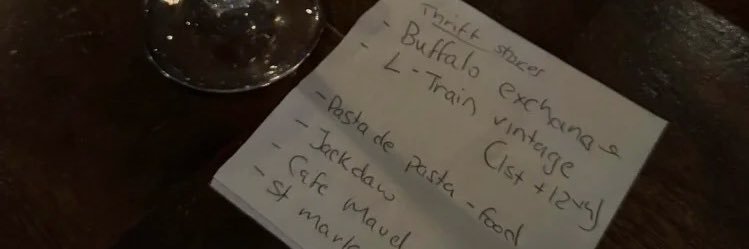 Thrift stores
- Buffalo exchange
- L-Train vintage
(1st + 12th)
- Pasta de Pasta - food
- Jackdaw
- Cafe Maud
- St mark